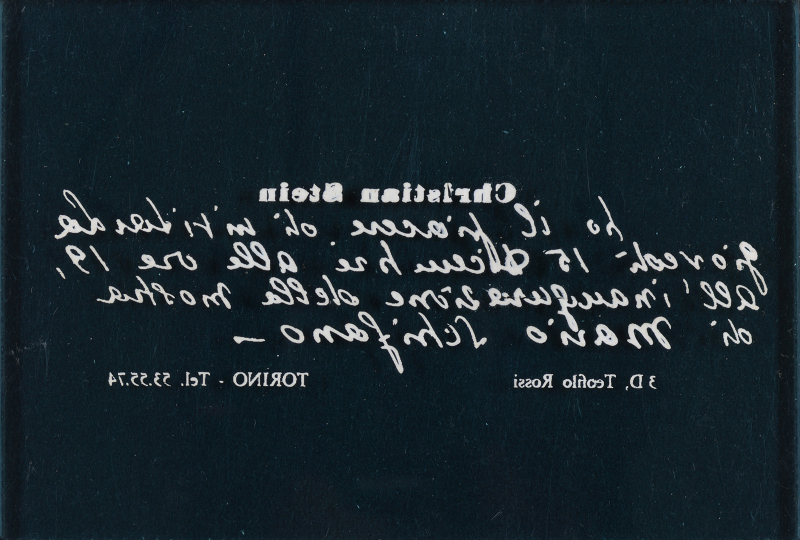 Christian Stein
ho il piacere di invitarla
giovedì 15 dicembre alle ore 19,
all'inaugurazione della mostra
di Mario Schifano —
3 D, Teofilo Rossi TORINO - Tel. 53.55.74